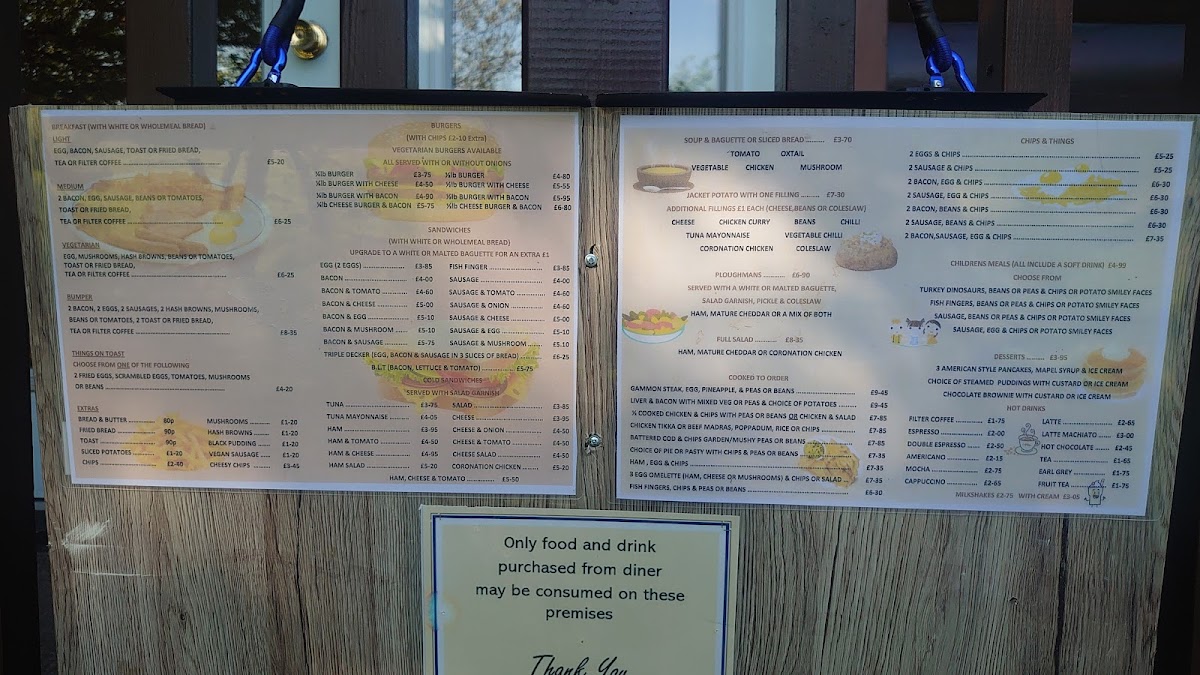 BREAKFAST (WITH WHITE OR WHOLEMEAL BREAD)
LIGHT
EGG, BACON, SAUSAGE, TOAST OR FRIED BREAD,
TEA OR FILTER COFFEE £5-20
MEDIUM
2 BACON, EGG, SAUSAGE, BEANS OR TOMATOES,
TOAST OR FRIED BREAD,
TEA OR FILTER COFFEE £6-25
VEGETARIAN
EGG, MUSHROOMS, HASH BROWNS, BEANS OR TOMATOES,
TOAST OR FRIED BREAD,
TEA OR FILTER COFFEE £6-25
BUMPER
2 BACON, 2 EGGS, 2 SAUSAGES, 2 HASH BROWNS, MUSHROOMS,
BEANS OR TOMATOES, 2 TOAST OR FRIED BREAD,
TEA OR FILTER COFFEE £8-35
THINGS ON TOAST
CHOOSE FROM ONE OF THE FOLLOWING
2 FRIED EGGS, SCRAMBLED EGGS, TOMATOES, MUSHROOMS
OR BEANS £4-20
EXTRAS
BREAD & BUTTER 80p MUSHROOMS £1-20
FRIED BREAD 90p HASH BROWNS £1-20
TOAST 90p BLACK PUDDING £1-20
SLICED POTATOES £1-20 VEGAN SAUSAGE £1-20
CHIPS £2-40 CHEESY CHIPS £3-45
BURGERS
(WITH CHIPS £2-10 Extra)
VEGETARIAN BURGERS AVAILABLE
ALL SERVED WITH OR WITHOUT ONIONS
¼lb BURGER £3-75 ½lb BURGER £4-80
¼lb BURGER WITH CHEESE £4-50 ½lb BURGER WITH CHEESE £5-55
¼lb BURGER WITH BACON £4-90 ½lb BURGER WITH BACON £5-95
¼lb CHEESE BURGER & BACON £5-75 ½lb CHEESE BURGER & BACON £6-80
SANDWICHES
(WITH WHITE OR WHOLEMEAL BREAD)
UPGRADE TO A WHITE OR MALTED BAGUETTE FOR AN EXTRA £1
EGG (2 EGGS) £3-85 FISH FINGER £3-85
BACON £4-00 SAUSAGE £4-00
BACON & TOMATO £4-60 SAUSAGE & TOMATO £4-60
BACON & CHEESE £5-00 SAUSAGE & ONION £4-60
BACON & EGG £5-10 SAUSAGE & CHEESE £5-00
BACON & MUSHROOM £5-10 SAUSAGE & EGG £5-10
BACON & SAUSAGE £5-75 SAUSAGE & MUSHROOM £5-10
TRIPLE DECKER (EGG, BACON & SAUSAGE IN 3 SLICES OF BREAD) £6-25
B.L.T (BACON, LETTUCE & TOMATO) £5-75
COLD SANDWICHES
SERVED WITH SALAD GARNISH
TUNA £3-75 SALAD £3-85
TUNA MAYONNAISE £4-05 CHEESE £3-95
HAM £3-95 CHEESE & ONION £4-50
HAM & TOMATO £4-50 CHEESE & TOMATO £4-50
HAM & CHEESE £4-95 CHEESE SALAD £4-50
HAM SALAD £5-20 CORONATION CHICKEN £5-20
HAM, CHEESE & TOMATO £5-50
SOUP & BAGUETTE OR SLICED BREAD £3-70
TOMATO OXTAIL
VEGETABLE CHICKEN MUSHROOM
JACKET POTATO WITH ONE FILLING £7-30
ADDITIONAL FILLINGS £1 EACH (CHEESE,BEANS OR COLESLAW)
CHEESE CHICKEN CURRY BEANS CHILLI
TUNA MAYONNAISE VEGETABLE CHILLI
CORONATION CHICKEN COLESLAW
PLOUGHMANS £6-90
SERVED WITH A WHITE OR MALTED BAGUETTE,
SALAD GARNISH, PICKLE & COLESLAW
HAM, MATURE CHEDDAR OR A MIX OF BOTH
FULL SALAD £8-35
HAM, MATURE CHEDDAR OR CORONATION CHICKEN
COOKED TO ORDER
GAMMON STEAK, EGG, PINEAPPLE, & PEAS OR BEANS £9-45
LIVER & BACON WITH MIXED VEG OR PEAS & CHOICE OF POTATOES £9-45
COOKED CHICKEN & CHIPS WITH PEAS OR BEANS OR CHICKEN & SALAD £7-85
CHICKEN TIKKA OR BEEF MADRAS, POPPADUM, RICE OR CHIPS £7-85
BATTERED COD & CHIPS GARDEN/MUSHY PEAS OR BEANS £7-85
CHOICE OF PIE OR PASTY WITH CHIPS & PEAS OR BEANS £7-35
HAM , EGG & CHIPS £7-35
3 EGG OMELETTE (HAM, CHEESE OR MUSHROOMS) & CHIPS OR SALAD £7-35
FISH FINGERS, CHIPS & PEAS OR BEANS £6-30
CHIPS & THINGS
2 EGGS & CHIPS £5-25
2 SAUSAGE & CHIPS £5-25
2 BACON, EGG & CHIPS £6-30
2 SAUSAGE, EGG & CHIPS £6-30
2 BACON, BEANS & CHIPS £6-30
2 SAUSAGE, BEANS & CHIPS £6-30
2 BACON,SAUSAGE, EGG & CHIPS £7-35
CHILDRENS MEALS (ALL INCLUDE A SOFT DRINK) £4-99
CHOOSE FROM
TURKEY DINOSAURS, BEANS OR PEAS & CHIPS OR POTATO SMILEY FACES
FISH FINGERS, BEANS OR PEAS & CHIPS OR POTATO SMILEY FACES
SAUSAGE, BEANS OR PEAS & CHIPS OR POTATO SMILEY FACES
SAUSAGE, EGG & CHIPS OR POTATO SMILEY FACES
DESSERTS £3-95
3 AMERICAN STYLE PANCAKES, MAPEL SYRUP & ICE CREAM
CHOICE OF STEAMED PUDDINGS WITH CUSTARD OR ICE CREAM
CHOCOLATE BROWNIE WITH CUSTARD OR ICE CREAM
HOT DRINKS
FILTER COFFEE £1-75 LATTE £2-65
ESPRESSO £2-00 LATTE MACHIATO £3-00
DOUBLE ESPRESSO £2-50 HOT CHOCOLATE £2-45
AMERICANO £2-15 TEA £1-65
MOCHA £2-75 EARL GREY £1-75
CAPPUCCINO £2-65 FRUIT TEA £1-75
MILKSHAKES £2-75 WITH CREAM £3-05
Only food and drink
purchased from diner
may be consumed on these
premises
Thank You